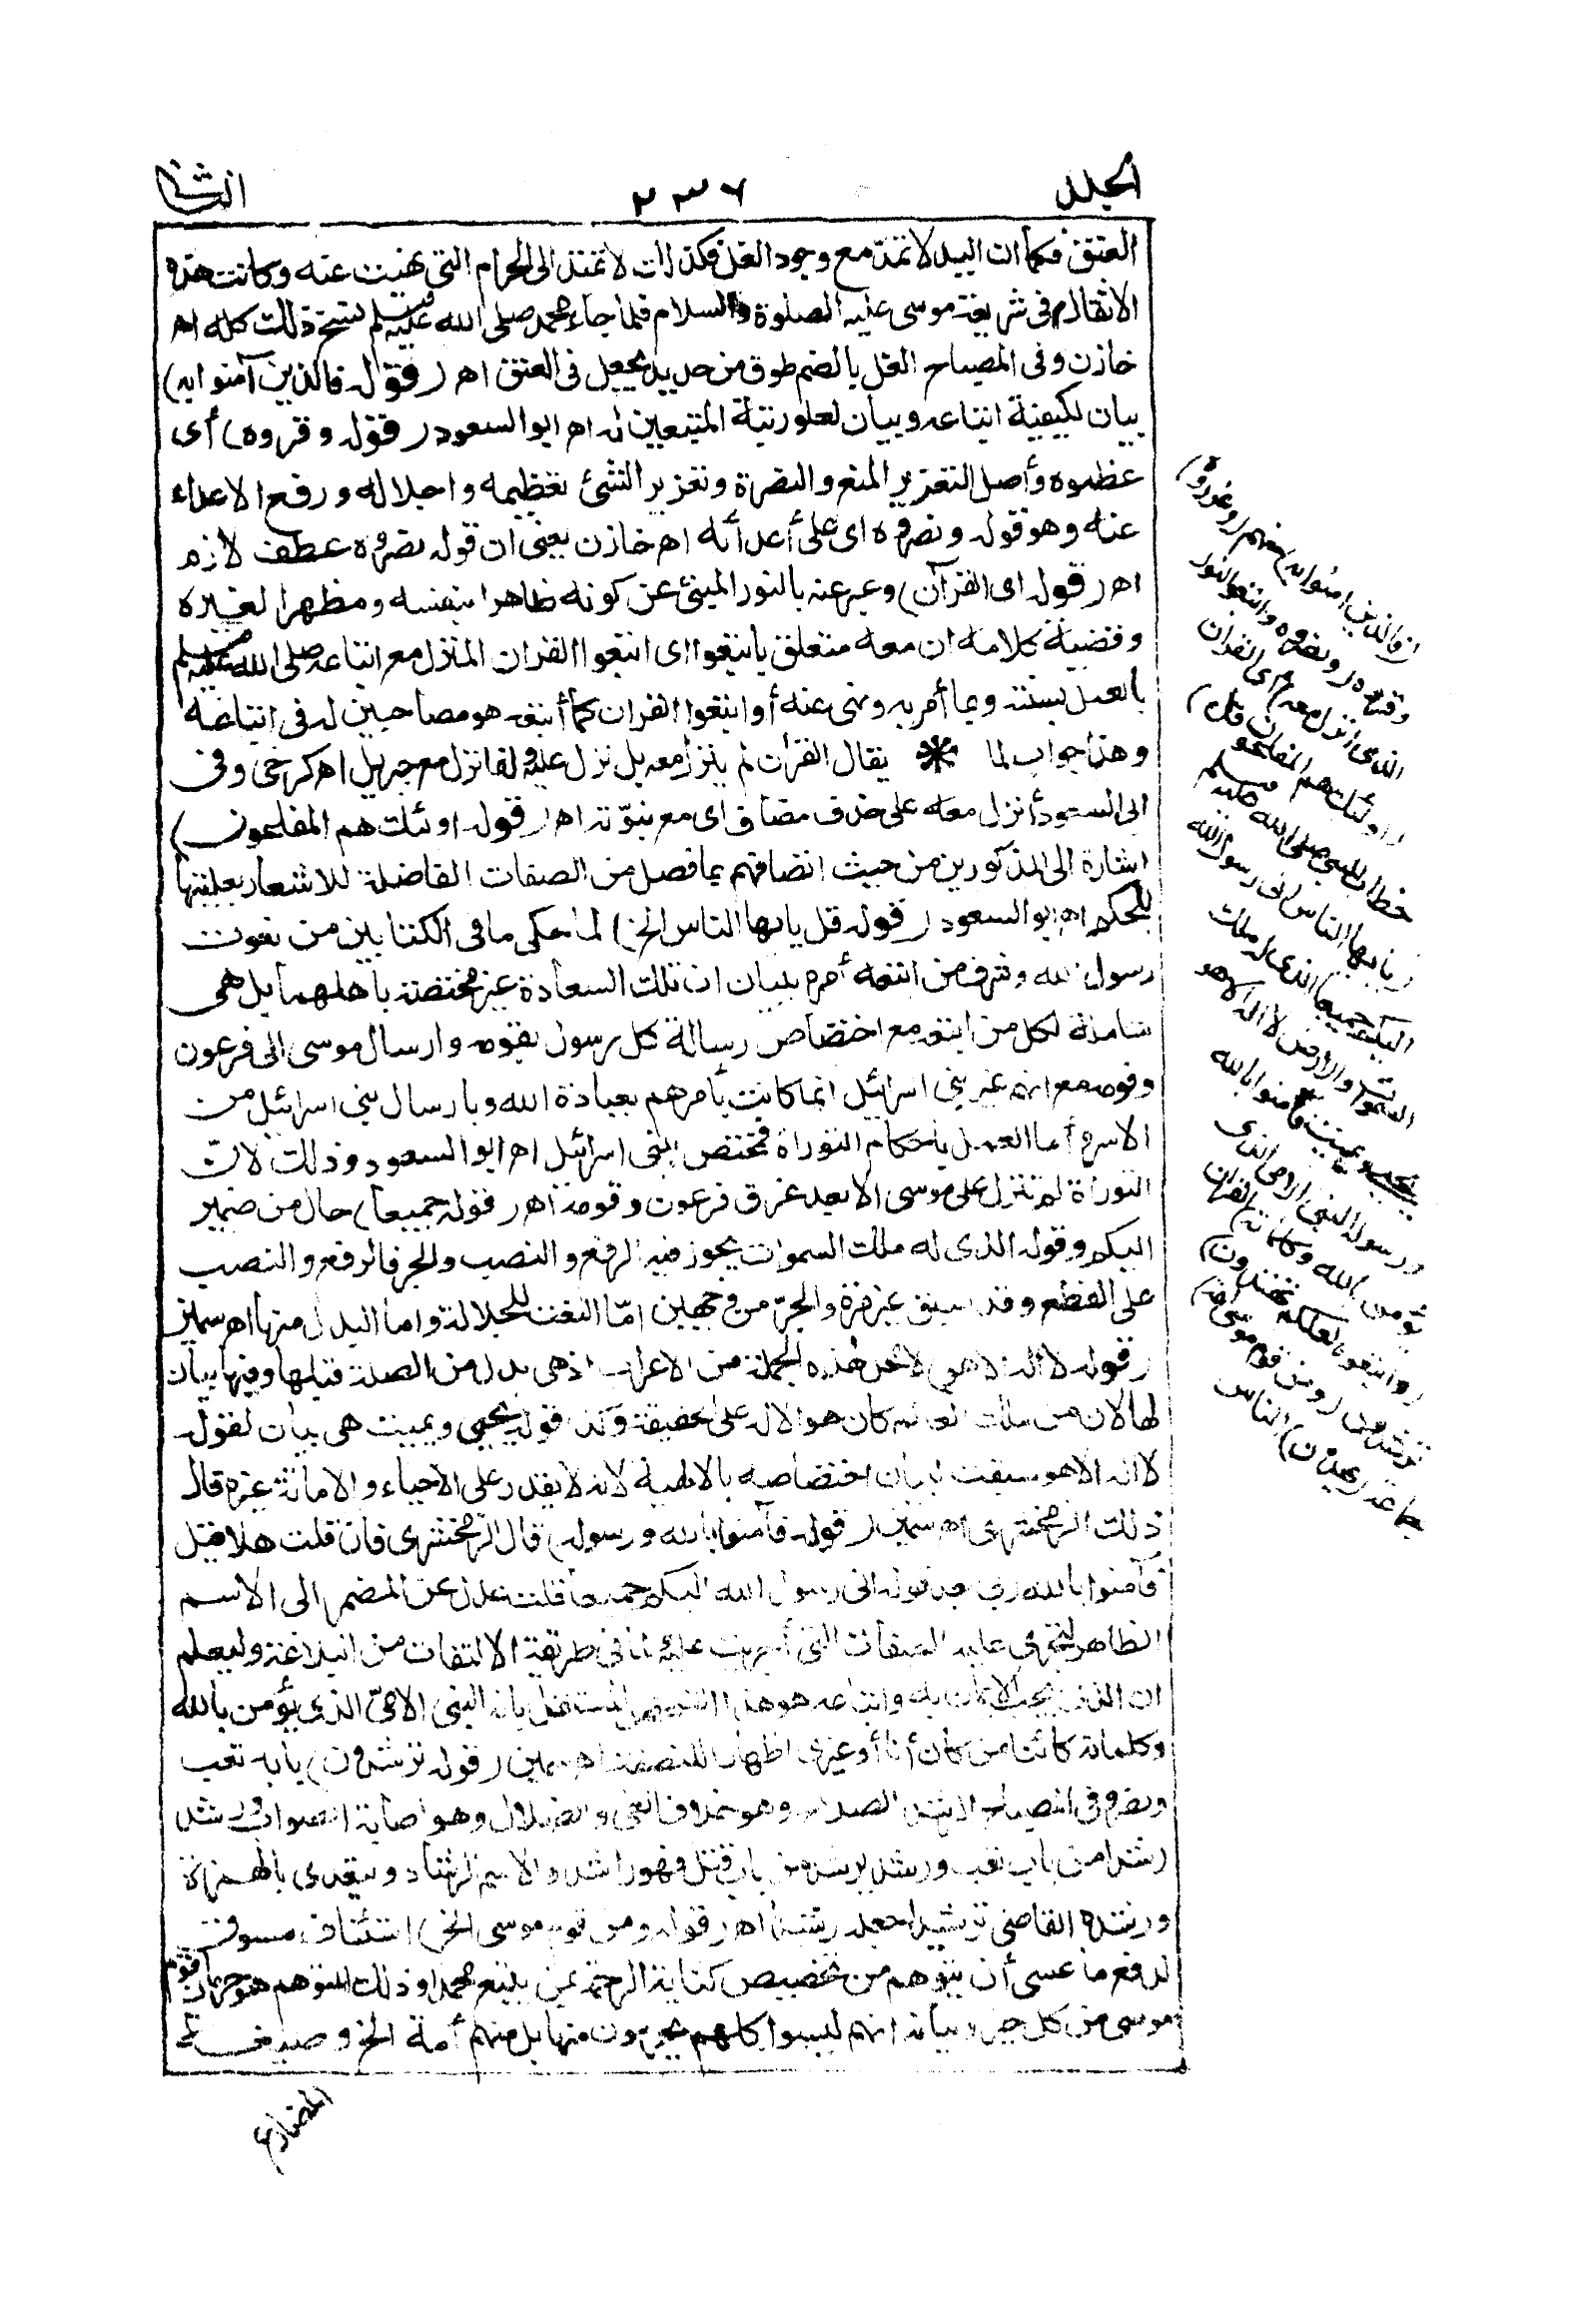 المجلد ٢٣٦ الثانى
العنق فكما ان اليد لا تمتد مع وجود الغل فكذلك لا تمتد الى الحرام التى نهيت عنه وكانت هذه
الاثقال فى شريعة موسى عليه الصلوة والسلام فلما جاء محمد صلى الله عليه وسلم نسخ ذلك كله اهـ
خازن وفى المصباح الغل بالضم طوق من حديد يجعل فى العنق اهـ (قوله فالذين آمنوا به)
بيان لكيفية اتباعه وبيان لعلو رتبة المتبعين له اهـ ابو السعود (قوله وقروه) أى
عظموه وأصل التعزير المنع والنصرة وتعزير الشئ تعظيمه واجلاله ورفع الاعداء
عنه وهو قوله ونصروه اى على أعدائه اهـ خازن يعنى ان قوله نصروه عطف لازم
اهـ (قوله اى القرآن) وعبر عنه بالنور المنبئ عن كونه ظاهرا بنفسه ومظهرا لغيره
وقضية كلامه ان معه متعلق باتبعوا اى اتبعوا القران المنزل مع اتباعه صلى الله عليه وسلم
بالعمل بسنته وبما أمر به ونهى عنه أو اتبعوا القران كما أتبعه هو مصاحبين له فى اتباعه
وهذا جواب لما * يقال القرآن لم ينزل معه بل نزل عليه وانما نزل مع جبريل اهـ كرخى وفى
ابى السعود أنزل معه على حذف مضاف اى مع نبوّته اهـ (قوله اوئلك هم المفلحون)
اشارة الى المذكورين من حيث اتصافهم بما فصل من الصفات الفاضلة للاشعار بعليتها
للحكم اهـ ابو السعود (قوله قل يايها الناس الخ) لما حكى ما فى الكتابين من نعوت
رسول الله وشرف من اتبعه أمره ببيان ان تلك السعادة غير مختصة باهلهما بل هى
شاملة لكل من اتبعه مع اختصاص رسالة كل رسول بقومه وارسال موسى الى فرعون
وقومه مع انهم غير بنى اسرائيل انما كانت بأمرهم بعبادة الله وبارسال بنى اسرائيل من
الاسر أما العمل باحكام التوراة فمختص ببنى اسرائيل اهـ ابو السعود وذلك لان
التوراة لم تنزل على موسى الا بعد غرق فرعون وقومه اهـ (قوله جميعا) حال من ضمير
اليكم وقوله الذى له ملك السموات يجوز فيه الرفع والنصب والجر فالرفع والنصب
على القطع وقد سبق غير مرة والجرّ من وجهين امّا النعت للجلالة واما البدل منها اهـ سمين
(قوله لا اله الا هو) لا محل لهذه الجملة من الاعراب اذ هى بدل من الصلة قبلها وفيها بيان
لها لان من ملك العالم كان هو الاله على الحقيقة وكذا قوله يحيى ويميت هى بيان لقوله
لا اله الا هو سيقت لبيان اختصاصه بالالهية لانه لا يقدر على الاحياء والاماتة غيره قال
ذلك الزمخشرى اهـ سمين (قوله فآمنوا بالله ورسوله) قال الزمخشرى فان قلت هلا قيل
فآمنوا بالله وبى بعد قوله انى رسول الله اليكم جميعا قلت عدل عن المضمر الى الاسم
الظاهر لتجرى عليه الصفات التى أجريت عليه ولما فى طريقة الالتفات من البلاغة وليعلم
ان الذى يجب الايمان به واتباعه هو هذا الشخص المستقل بانه النبى الامىّ الذى يؤمن بالله
وكلماته كائنا من كان أنا أو غيرى اظهارا للنصفة اهـ سمين (قوله ترشدون) بابه تعب
ونصر وفى المصباح الرشد الصلاح وهو خلاف الغى والضلال وهو اصابة الصواب ورشد
رشدا من باب تعب ورشد يرشد من باب قتل فهو راشد والاسم الرشاد ويتعدى بالهمزة
ورشده القاضى ترشيدا جعله رشيدا اهـ (قوله ومن قوم موسى الخ) استئناف مسوق
لدفع ما عسى أن يتوهم من تخصيص كتابة الرحمة بمن يتبع محمدا وذلك المتوهم هو حرمان قوم
موسى من كل خير وبيانه انهم ليسوا كلهم يحرمون منها بل منهم أمة الخ وصيغة
المضارع
(فالذين امنوا به) منهم (وعزروه)
وقروه (ونصروه واتبعوا النور
الذى انزل معه) اى القران
(اولئك هم المفلحون قل)
خطاب للنبى صلى الله عليه وسلم
(يايها الناس انى رسول الله
اليكم جميعا الذى له ملك
السموات والارض لا اله الا هو
يحيى ويميت فامنوا بالله
ورسوله النبى الامى الذى
يؤمن بالله وكلماته) القران
(واتبعوه لعلكم تهتدون)
ترشدون (ومن قوم موسى امة)
جماعة (يهدون) الناس